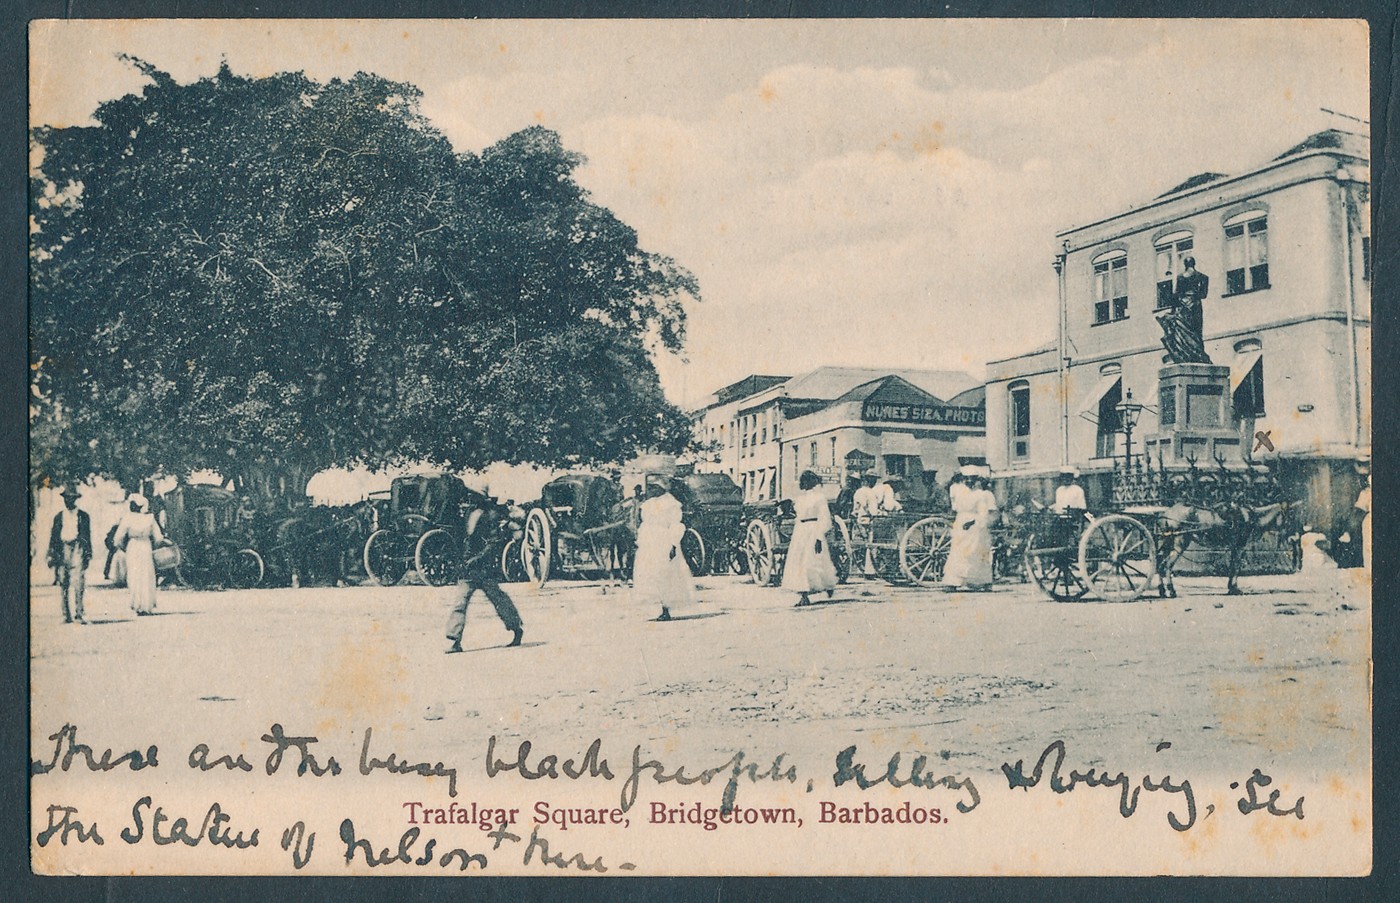 NUNES' SIZA. PHOTO
x
These are the busy black people, selling & buying, See
Trafalgar Square, Bridgetown, Barbados.
the Statue of Nelson + here -